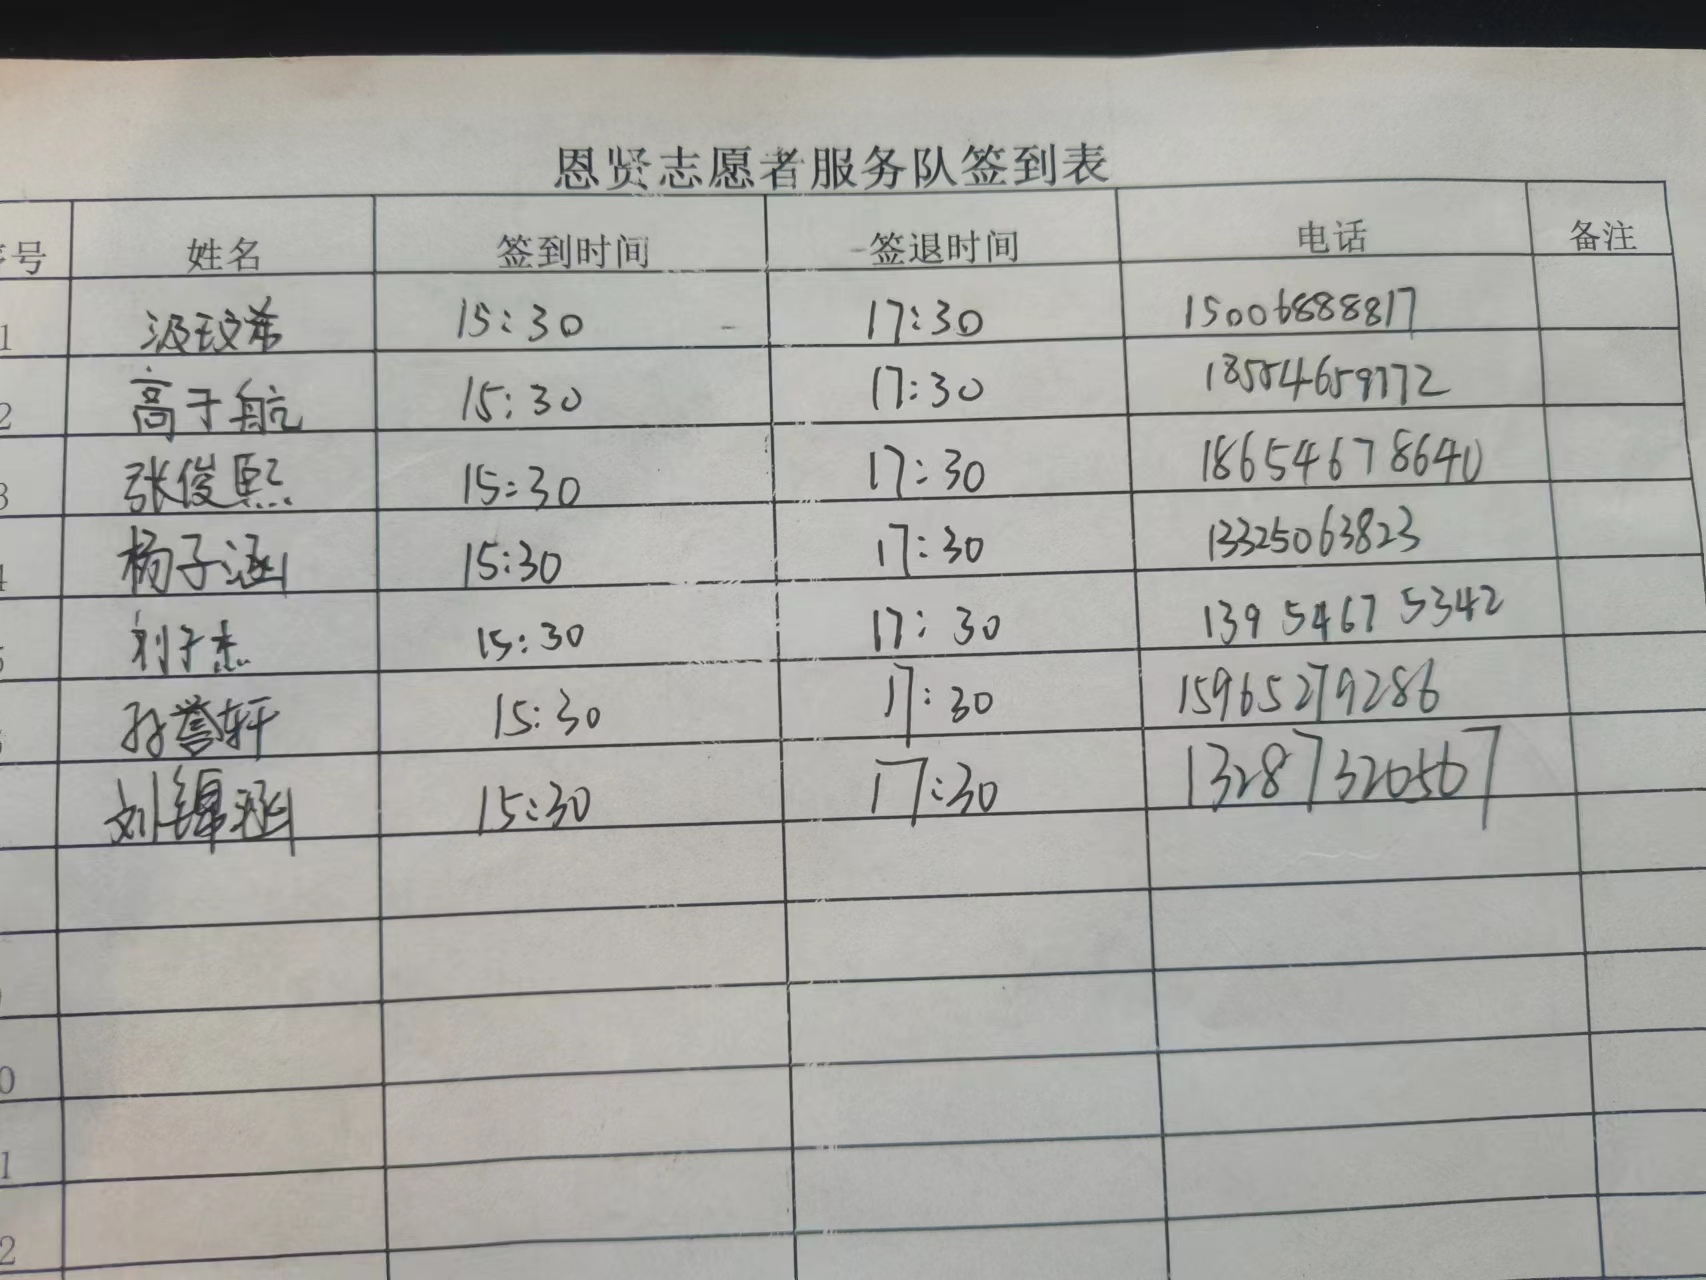 恩贤志愿者服务队签到表
号 姓名 签到时间 签退时间 电话 备注
1 汲玟希 15:30 17:30 15006888817
2 高于航 15:30 17:30 18554659772
3 张俊熙 15:30 17:30 18654678640
4 杨子涵 15:30 17:30 13325063823
5 刘子杰 15:30 17:30 13954675342
孙誉轩 15:30 17:30 15965279286
刘锦涵 15:30 17:30 13287320567
0
1
2